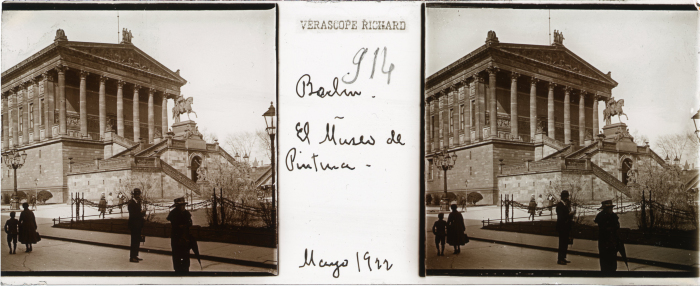 VÉRASCOPE RICHARD
914
Berlin.
El Museo de
Pintura -
Mayo 1922